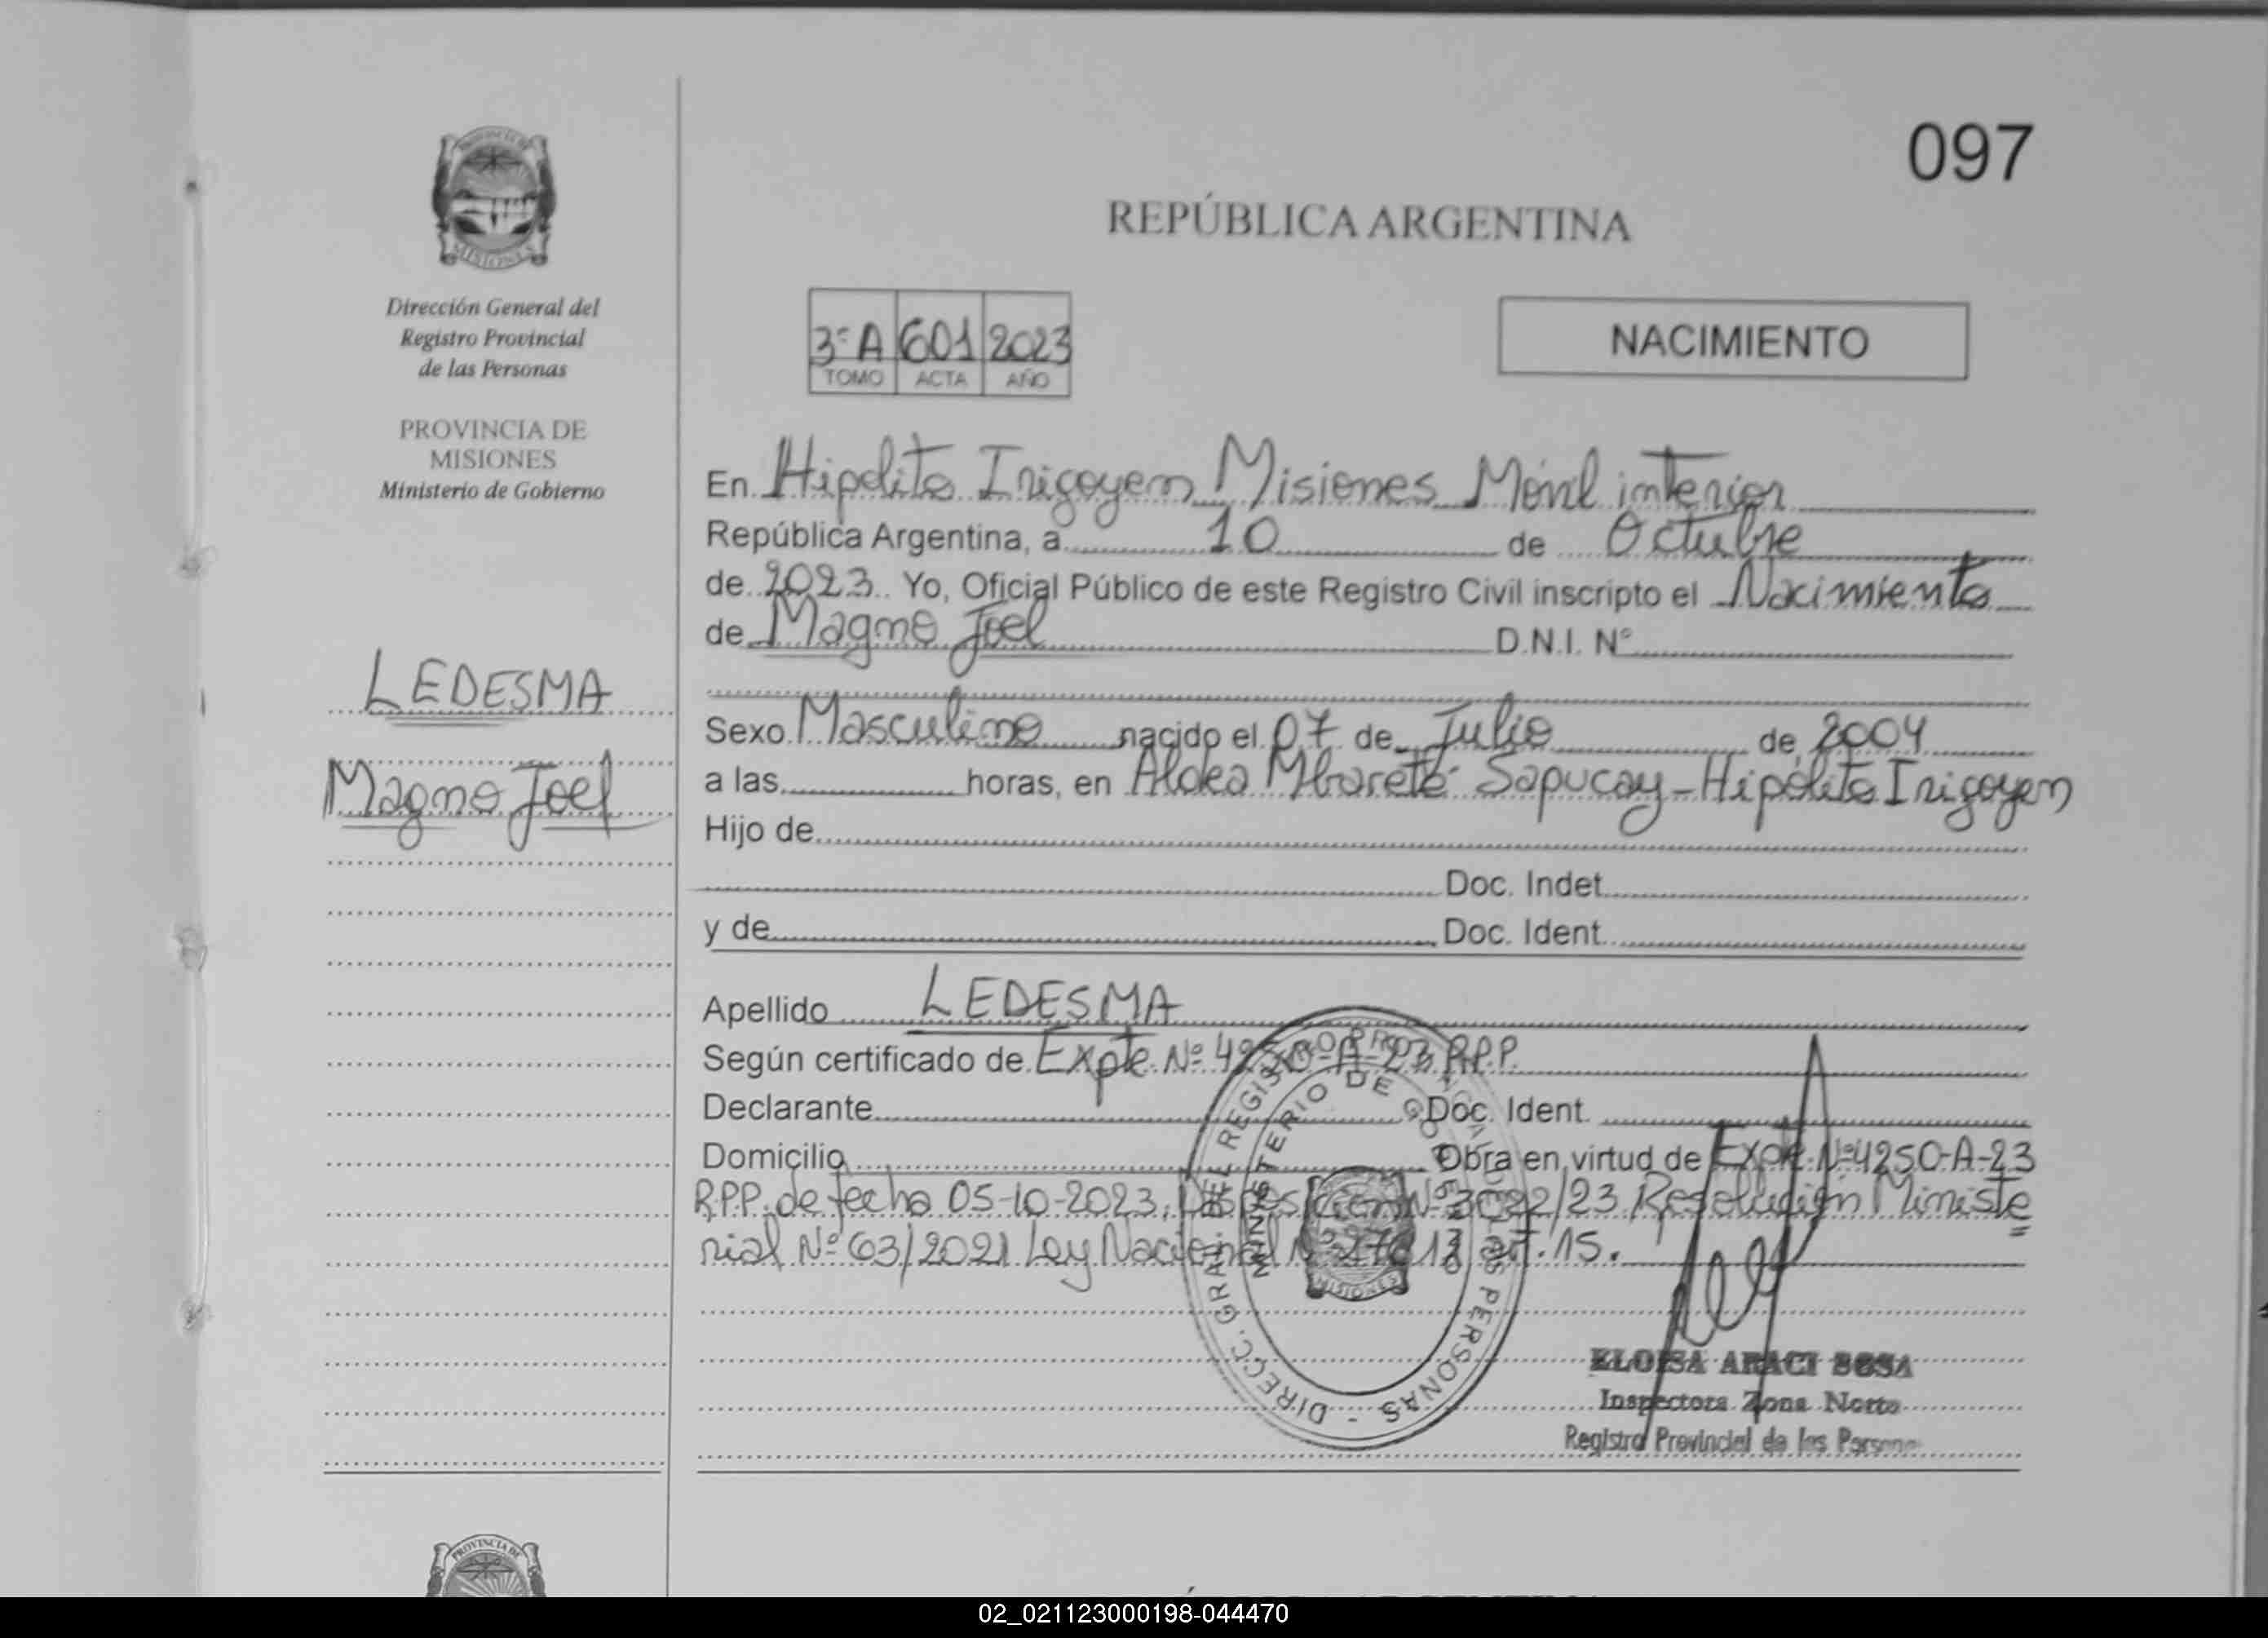 097
REPÚBLICA ARGENTINA
PROVINCIA DE
MISIONES
Dirección General del
Registro Provincial
de las Personas
PROVINCIA DE
MISIONES
Ministerio de Gobierno
LEDESMA
Magno Joel
3º A 601 2023
TOMO ACTA AÑO
NACIMIENTO
En Hipolito Irigoyen Misiones Móvil interior
República Argentina, a 10 de Octubre
de 2023 Yo, Oficial Público de este Registro Civil inscripto el Nacimiento
de Magno Joel D.N.I. Nº
Sexo Masculino nacido el 07 de Julio de 2004
a las horas, en Aldea Mbareté Sapucay - Hipólito Irigoyen
Hijo de
Doc. Indet.
y de Doc. Ident.
Apellido LEDESMA
Según certificado de Expte. Nº 4250-A-23 R.P.P.
Declarante Doc. Ident.
Domicilio Obra en virtud de Expte. Nº 4250-A-23
R.P.P. de fecha 05-10-2023, Disposición Nº 3022/23 Resolución Ministe
rial Nº 63/2021 Ley Nacional art. 15.
DIRECC. GRAL. DEL REGISTRO PROVINCIAL DE LAS PERSONAS -
MINISTERIO DE GOBIERNO
MISIONES
ELOISA ARACI SOSA
Inspectora Zona Norte
Registro Provincial de las Persona
PROVINCIA DE
02_021123000198-044470